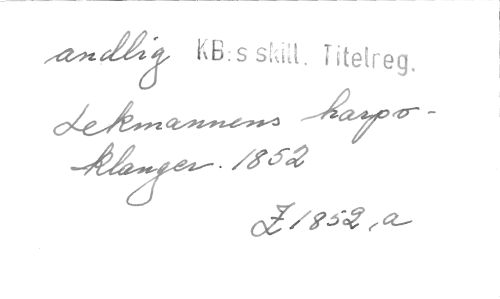 andlig KB:s skill. Titelreg.
Lekmannens harpo-
klanger. 1852
Z 1852, a